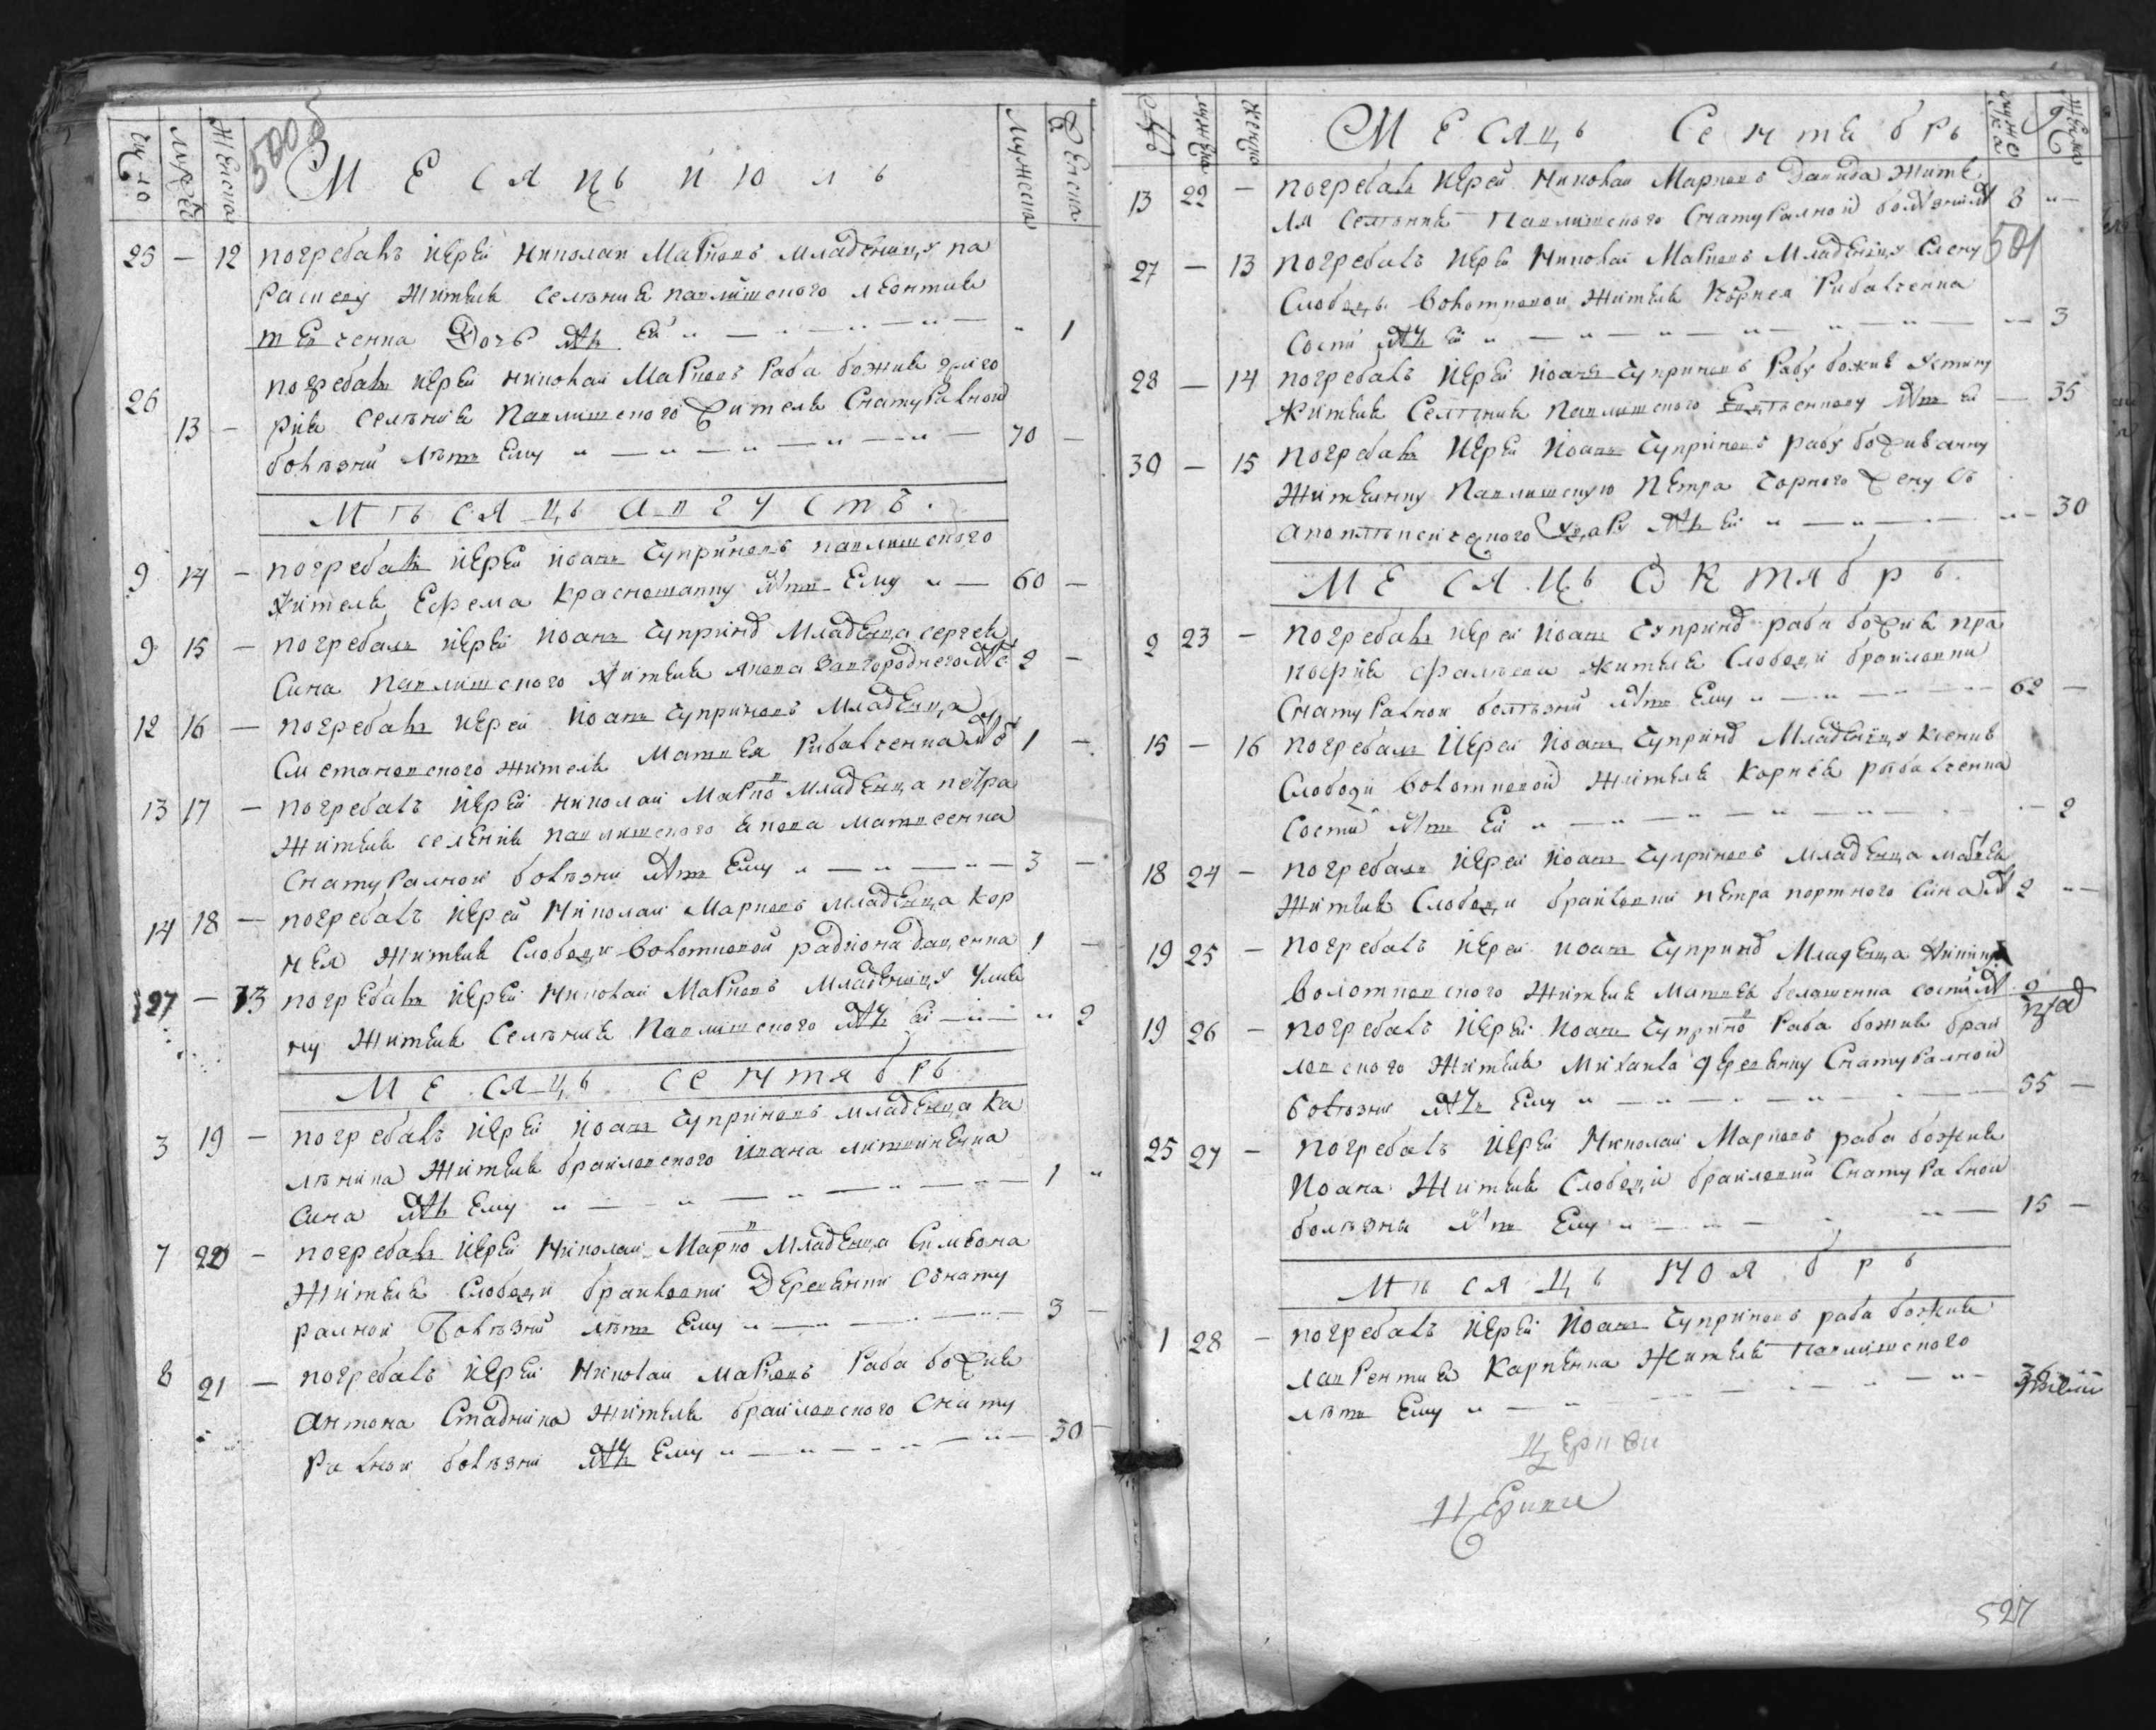 число
Мужеска
Женска
500 б
МЕСяцъ июль
Мужеска
Женска
25 — 12 погребалъ иерей николаи Марковъ младеницу па
раскеву жителя селѣния павлишского леонтия
ченка дочь лѣтъ ей „ — „ — „ — „ 1
26 погребалъ иерей николаи Марковъ раба божия григо
13 — рия селѣния павлишского жителя Снатуралной
болѣзни лѣтъ Ему „ — „ — „ — „ — 70 —
Мѣсяцъ августъ.
9 14 — погребалъ иерей иоанъ Чуприновъ павлишского
жителя Ефема красношапку лѣтъ Ему „ — 60 —
9 15 — погребалъ иерей иоанъ Чупринов младенца сергея
Сина павлишского жителя якова Завгороднего лѣ 2 —
12 16 — погребалъ иерей иоанъ Чуприновъ младенца
жителя Матвея Рибалченка лѣ 1 —
13 17 — погребалъ иерей николаи Марков младенца петра
жителя селения павлишского якова матвеенка
Снатуралнои болѣзни лѣтъ Ему „ — „ — „ — 3 —
14 18 — погребалъ иерей николаи Марковъ младенца кор
нея жителя Слободи болотиовой радиона даценка 1 —
27 — 13 погребалъ иерей николаи Марковъ младеницу улия
ну жителя селѣния павлишского лѣтъ ей — „ — „ 2
МЕСяцъ сентябрь
3 19 — погребалъ иерей иоанъ Чуприновъ младенца ка
лѣника жителя браиловского ивана литвиненка
Сина лѣтъ Ему „ — „ — „ — „ — 1 „
7 20 — погребалъ иерей николаи Марков младенца Симеона
жителя Слободи браиловки деревянки Снату
ралнои болѣзни лѣтъ Ему „ — „ — 3 —
8 21 — погребалъ иерей николаи Марковъ раба божия
антона Стадника жителя браиловского Снату
ралнои болѣзни лѣтъ Ему „ — „ — „ — 30 —
число
мужеска
женска
МЕСяцъ Сентябрь
мужеска
женска
13 22 — погребалъ иерей николаи Марковъ Данида жите
ля селѣния павлишского Снатуралнои болѣзни лѣ 8 „ —
501
27 — 13 погребалъ иерей николаи Марковъ младеницу Елену
Слободи болотновои жителя корнея Рибалченка
лѣтъ ей „ — „ — „ — „ — 3
28 — 14 погребалъ иерей иоанъ Чуприновъ рабу божию устину
жителя селѣния павлишского лѣтъ ей — 35
30 — 15 погребалъ иерей иоанъ Чуприновъ рабу божию анну
жителку павлишскую петра Чорного жену Съ
лѣтъ ей „ — „ — — 30
МЕСяцъ Октябрь.
2 23 — погребалъ иерей иоанъ Чупринов раба божия про
кофия жителя Слободи браиловки
Снатуралнои болѣзни лѣтъ Ему „ — „ — 62 —
15 — 16 погребалъ иерей иоанъ Чупринов младеницу ксению
Слободи болотновои жителя корнея рыбалченка
лѣтъ Ей „ — „ — „ — 2
18 24 — погребалъ иерей иоанъ Чуприновъ младенца матвея
жителя Слободи браиловки петра портного сина лѣ 2 „ —
19 25 — погребалъ иерей иоанъ Чупринов младенца
болотновского жителя матвея лѣ 2
19 26 — погребалъ иерей иоанъ Чупринов раба божия браи
ловского жителя михаила деревянку Снатуралнои
болѣзни лѣтъ Ему „ — „ — „ — 55 —
25 27 — погребалъ иерей николаи Марковъ раба божия
иоана жителя Слободи браиловки Снатуралнои
болѣзни лѣтъ Ему „ — „ — „ — 15 —
Мѣсяцъ ноябрь
1 28 — погребалъ иерей иоанъ Чуприновъ раба божия
лаврентия карпенка жителя павлишского
лѣтъ Ему „ — „ — „ — 36
церкви
церкви
527